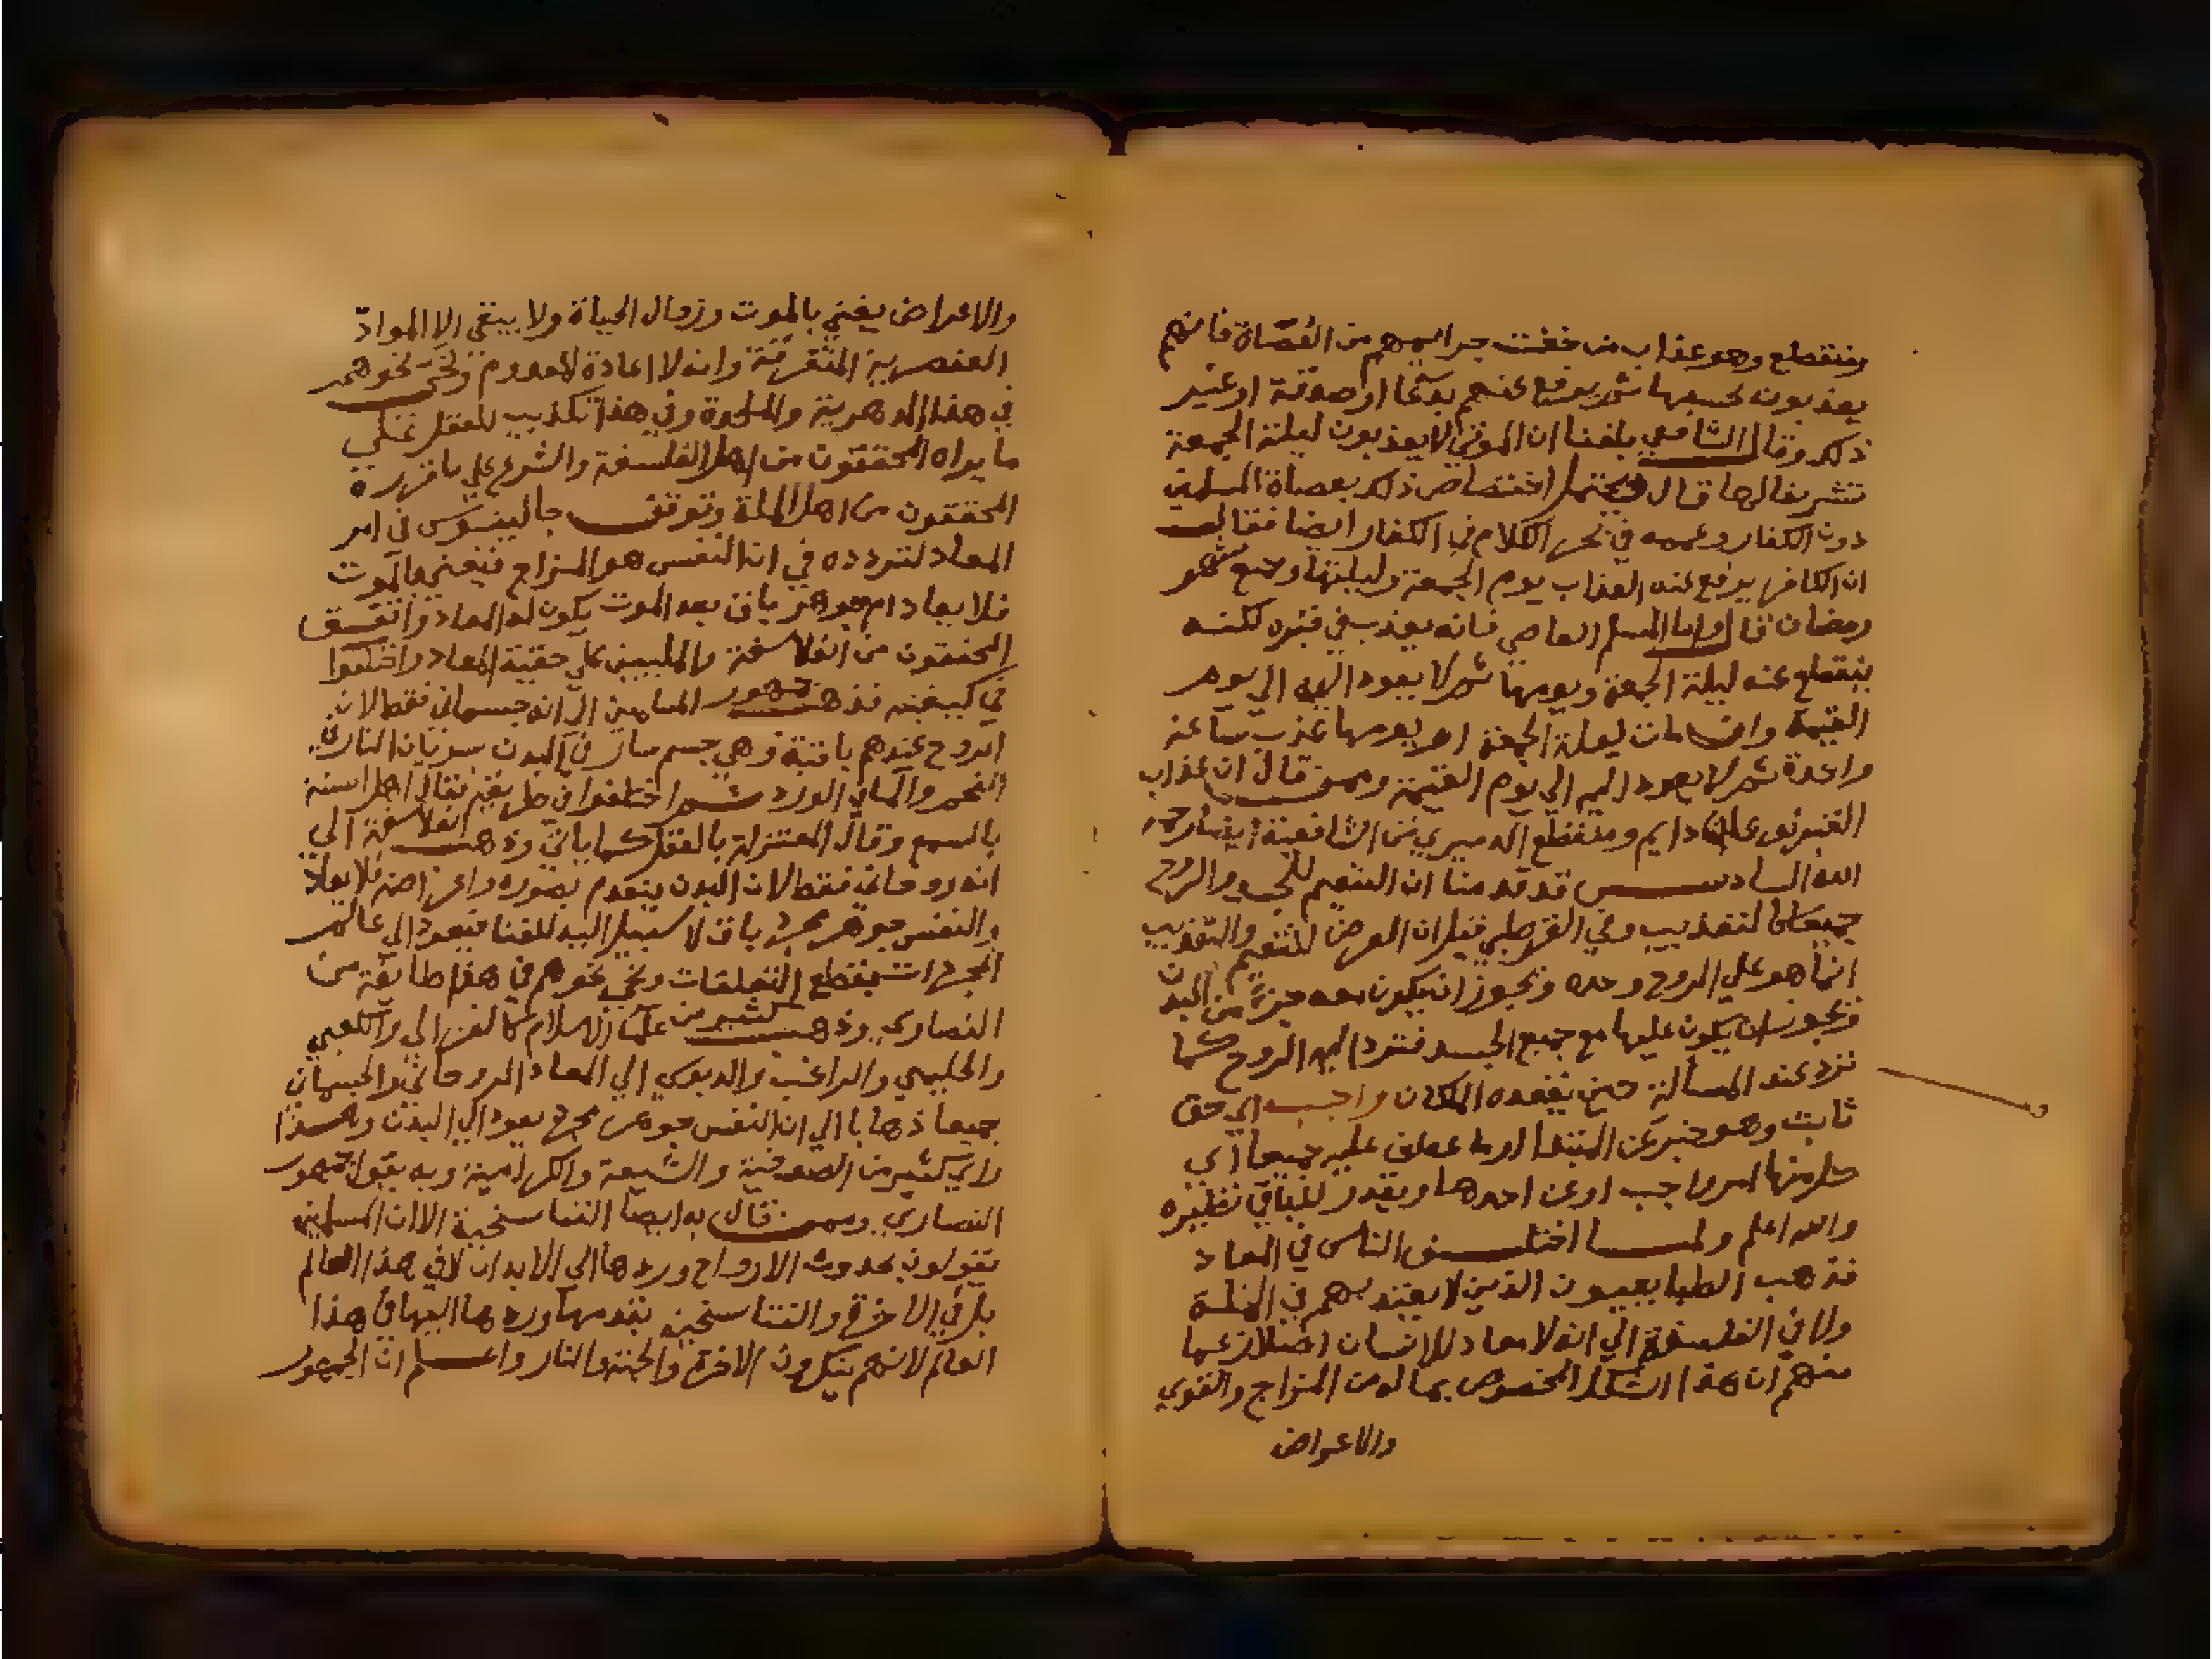 ومنقطع وهو عذاب من خفت جرايمهم من العصاة فانهم
يعذبون بحسبها ثم يرفع عنهم بدعا او صدقة او غير
ذلك وقال اليافعي بلغنا ان الموتى لا يعذبون ليلة الجمعة
تشريفا لها قال ويحتمل اختصاص ذلك بعصاة المسلمين
دون الكفار وعممه في بحر الكلام في الكفار ايضا فقال
ان الكافر يرفع عنه العذاب يوم الجمعة وليلتها وجميع شهر
رمضان قال واما المسلم العاصي فانه يعذب في قبره لكنه
ينقطع عنه ليلة الجمعة ويومها ثم لا يعود اليه الي يوم
القيمة وان مات ليلة الجمعة او يومها عذب ساعة
واحدة ثم لا يعود اليه الي يوم القيمة وممن قال ان عذاب
القبر دايم ومنقطع الدميري من الشافعية ايضا رحمه
الله السادس قد قدمنا ان التنعيم للجسد والروح
جميعا كالتعذيب وفي القرطبي قيل ان العرض للتنعيم والتعذيب
انما هو علي الروح وحده ويجوز ان يكون معه جزء من البدن
ويجوز ان يكون عليها مع جميع الجسد فترد اليه الروح كما
ترد عند المسألة حين يقعده الملكان واجب اي حق
ثابت وهو خبر عن المبتدا اوما عطف عليه جميعا اي
كل منها امر واجب او عن احدها ويقدر للباقي نظيره
والله اعلم ولما اختلف الناس في المعاد
فذهب الطبايعيون الذين لا يعتد بهم في الملة
ولا في الفلسفة الي انه لا معاد للانسان اصلا زعما
منهم ان هذا الشكل المخصوص بما له من المزاج والقوي
والاعراض
والاعراض يفني بالموت وزوال الحياة ولا يبقي الا المواد
العنصرية المتفرقة وانه لا اعادة للمعدوم ونحي نحوهم
في هذا الدهرية والملحدة وفي هذا تكذيب للعقل علي
ما يراه المحققون من اهل الفلسفة والشرع علي ما قرره
المحققون من اهل الملة وتوقف جالينوس في امر
المعاد لتردده في ان النفس هو المزاج فيفني بالموت
فلا يعاد ام جوهر باق بعد الموت يكون له المعاد واتفق
المحققون من الفلاسفة والمليين علي حقية المعاد واختلفوا
في كيفيته فذهب جمهور المسلمين الي انه جسماني فقط لان
الروح عندهم باقية وهي جسم سار في البدن سريان النار في
الفحم والماء في الورد ثم اختلفوا في طريقه فقال اهل السنة
بالسمع وقال المعتزلة بالعقل كما ياتي وذهب الفلاسفة الي
انه روحاني فقط لان البدن ينعدم بصوره واعراضه فلا يعاد
والنفس جوهر مجرد باق لا سبيل اليه للفنا فيعود الي عالم
المجردات بقطع التعلقات ونحي نحوهم في هذا طايفة من
النصاري وذهب كثير من علما الاسلام كالغزالي والكعبي
والحليمي والراغب والدبوسي الي المعاد الروحاني والجسماني
جميعا ذهابا الي ان النفس جوهر مجرد يعود الي البدن وهذا
راي كثير من الصوفية والشيعة والكرامية وبه يقول جمهور
النصاري وممن قال به ايضا التناسخية الا ان المسلمين
يقولون بحدوث الارواح وردها الي الابدان لا في هذا العالم
بل في الاخرة والتناسخية بقدمها وردها اليها في هذا
العالم لانهم ينكرون الاخرة والجنة والنار واعلم ان الجمهور